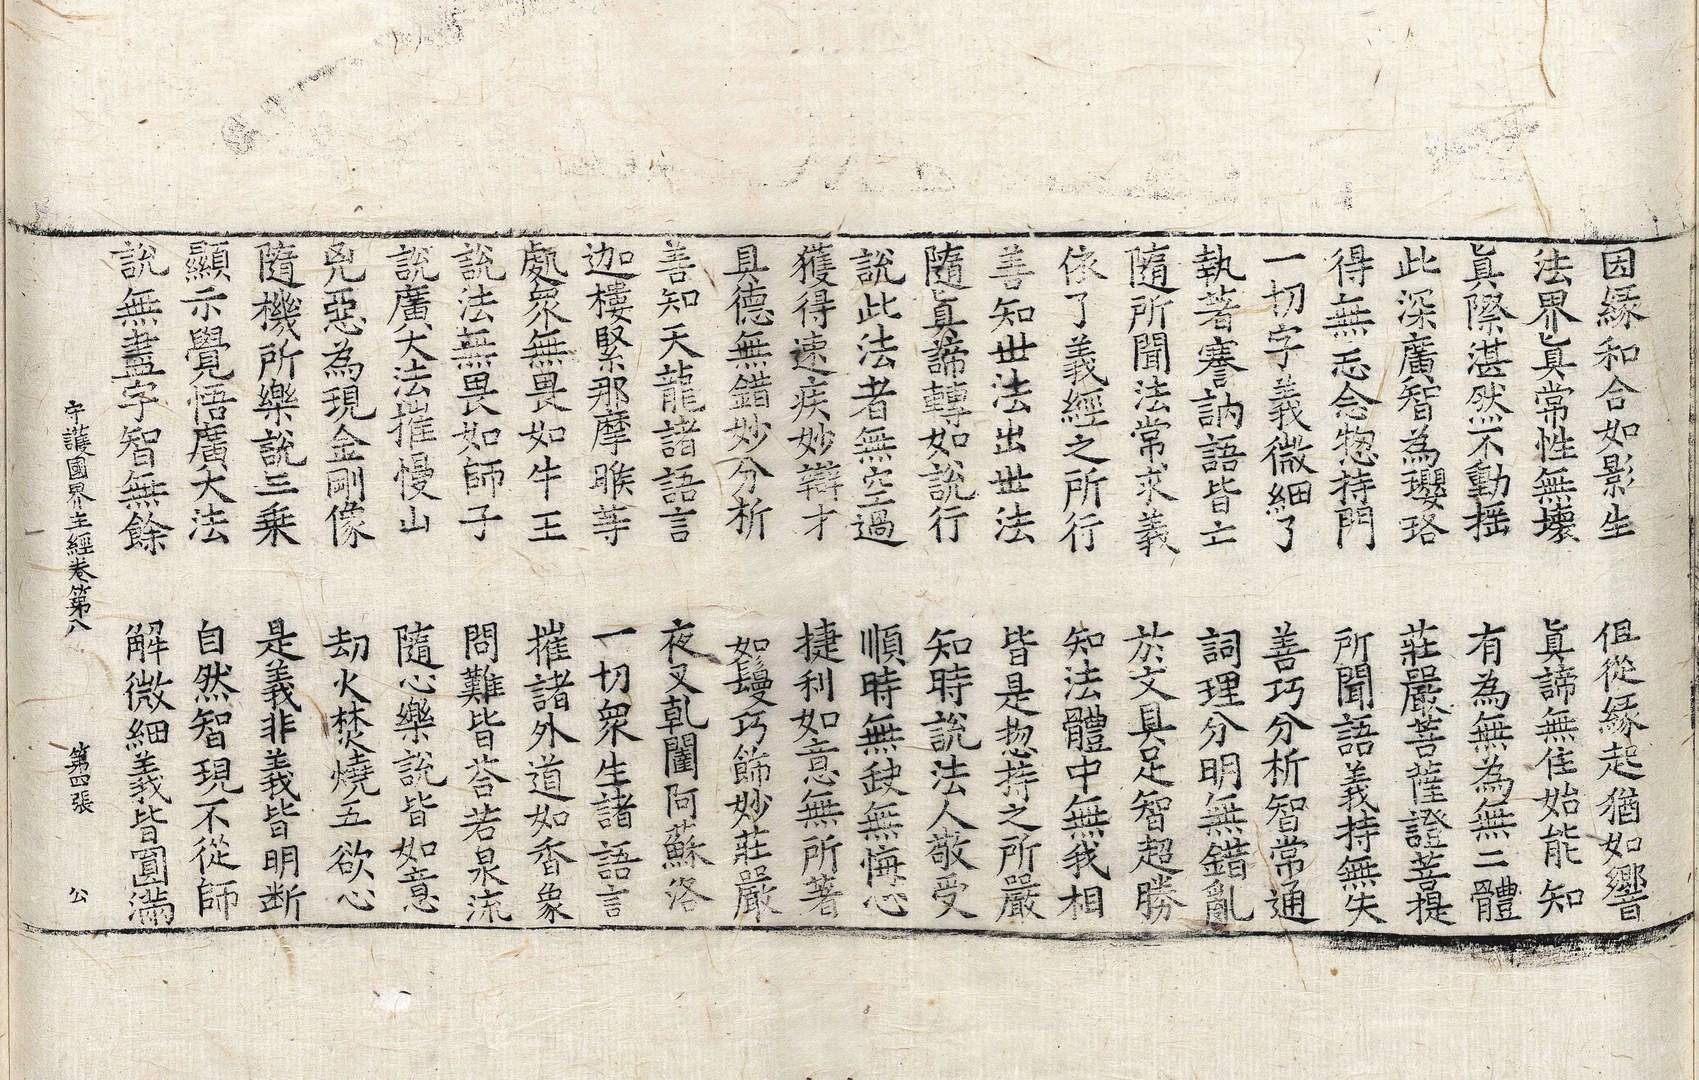 因緣和合如影生　但從緣起猶如響
法界眞常性無壞　眞諦無住始能知
眞際湛然不動搖　有為無為無二體
此深廣智為瓔珞　莊嚴菩薩證菩提
得無忘念惣持門　所聞語義持無失
一切字義微細了　善巧分析智常通
執著謇訥語皆亡　詞理分明無錯亂
隨所聞法常求義　於文具足智超勝
依了義經之所行　知法體中無我相
善知世法出世法　皆是惣持之所嚴
隨眞諦轉如說行　知時說法人敬受
說此法者無空過　順時無缺無悔心
獲得速疾妙辯才　捷利如意無所著
具德無錯妙分析　如鬘巧飾妙莊嚴
善知天龍諸語言　夜叉乹闥阿蘇洛
迦樓緊那摩睺等　一切衆生諸語言
處衆無畏如牛王　摧諸外道如香象
說法無畏如師子　問難皆荅若泉流
說廣大法摧慢山　隨心樂說皆如意
兇惡為現金剛像　劫火焚燒五欲心
隨機所樂說三乗　是義非義皆明断
顯示覺悟廣大法　自然智現不從師
說無盡字智無餘　解微細義皆圓滿
守護國界主經卷第八　第四張　公